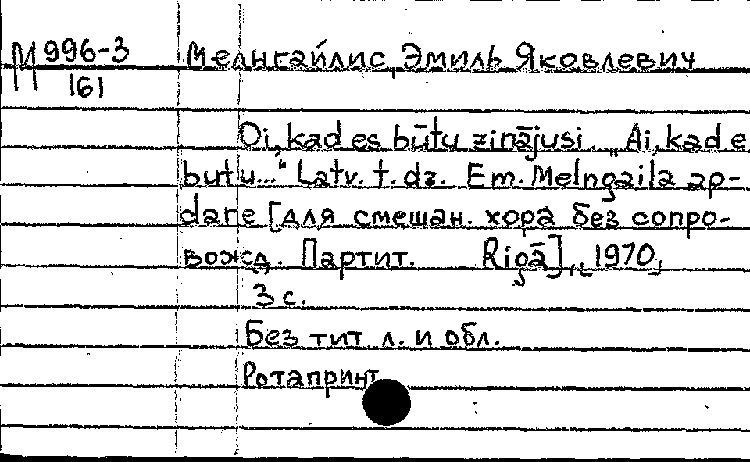 М 996-3
161
Мелнгайлис, Эмиль Яковлевич
Oi, kad es būtu zinājusi... „Ai, kad e
butu..." Latv. t. dz. Em. Melngaila ap-
dare [для смешан. хора без сопро-
вожд. Партит. Rigā], 1970,
3 с.
Без тит л. и обл.
Ротапринт